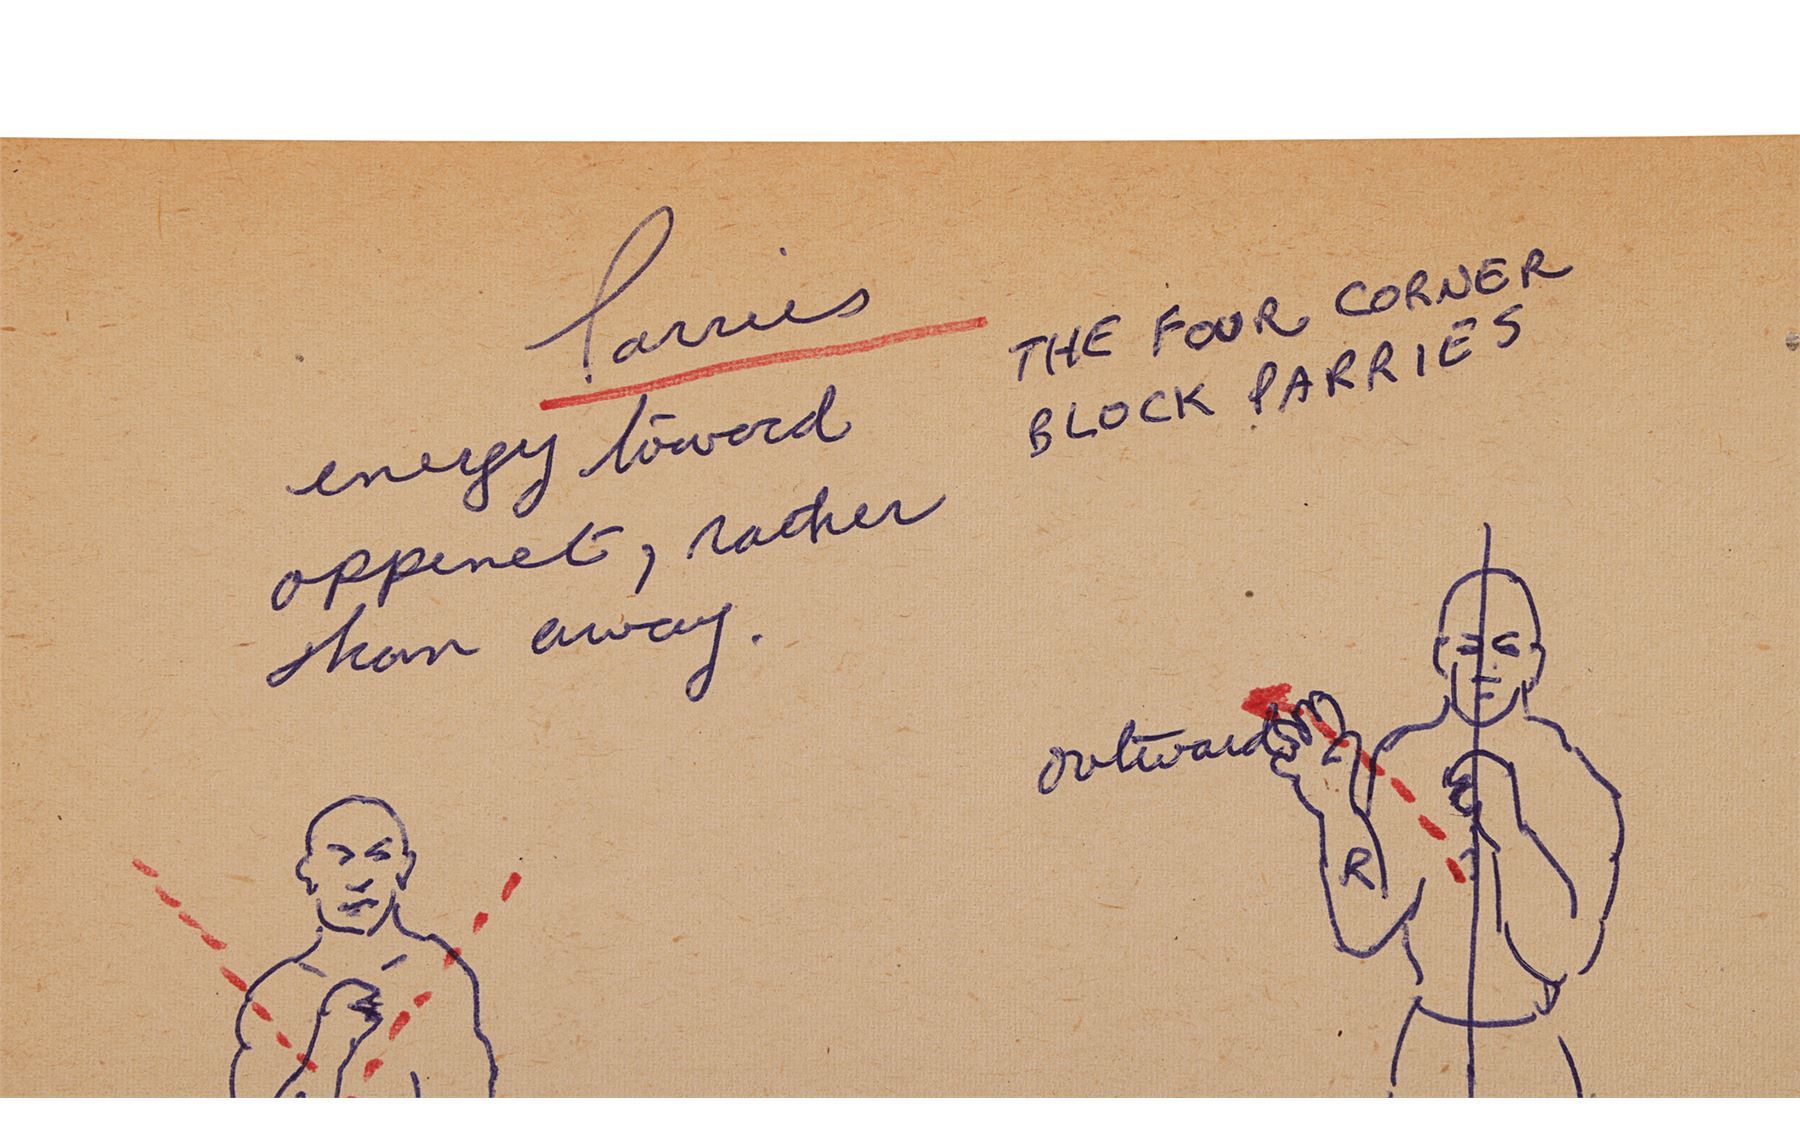 Parries
energy toward
oppenet, rather
than away.
THE FOUR CORNER
BLOCK PARRIES
outward
R